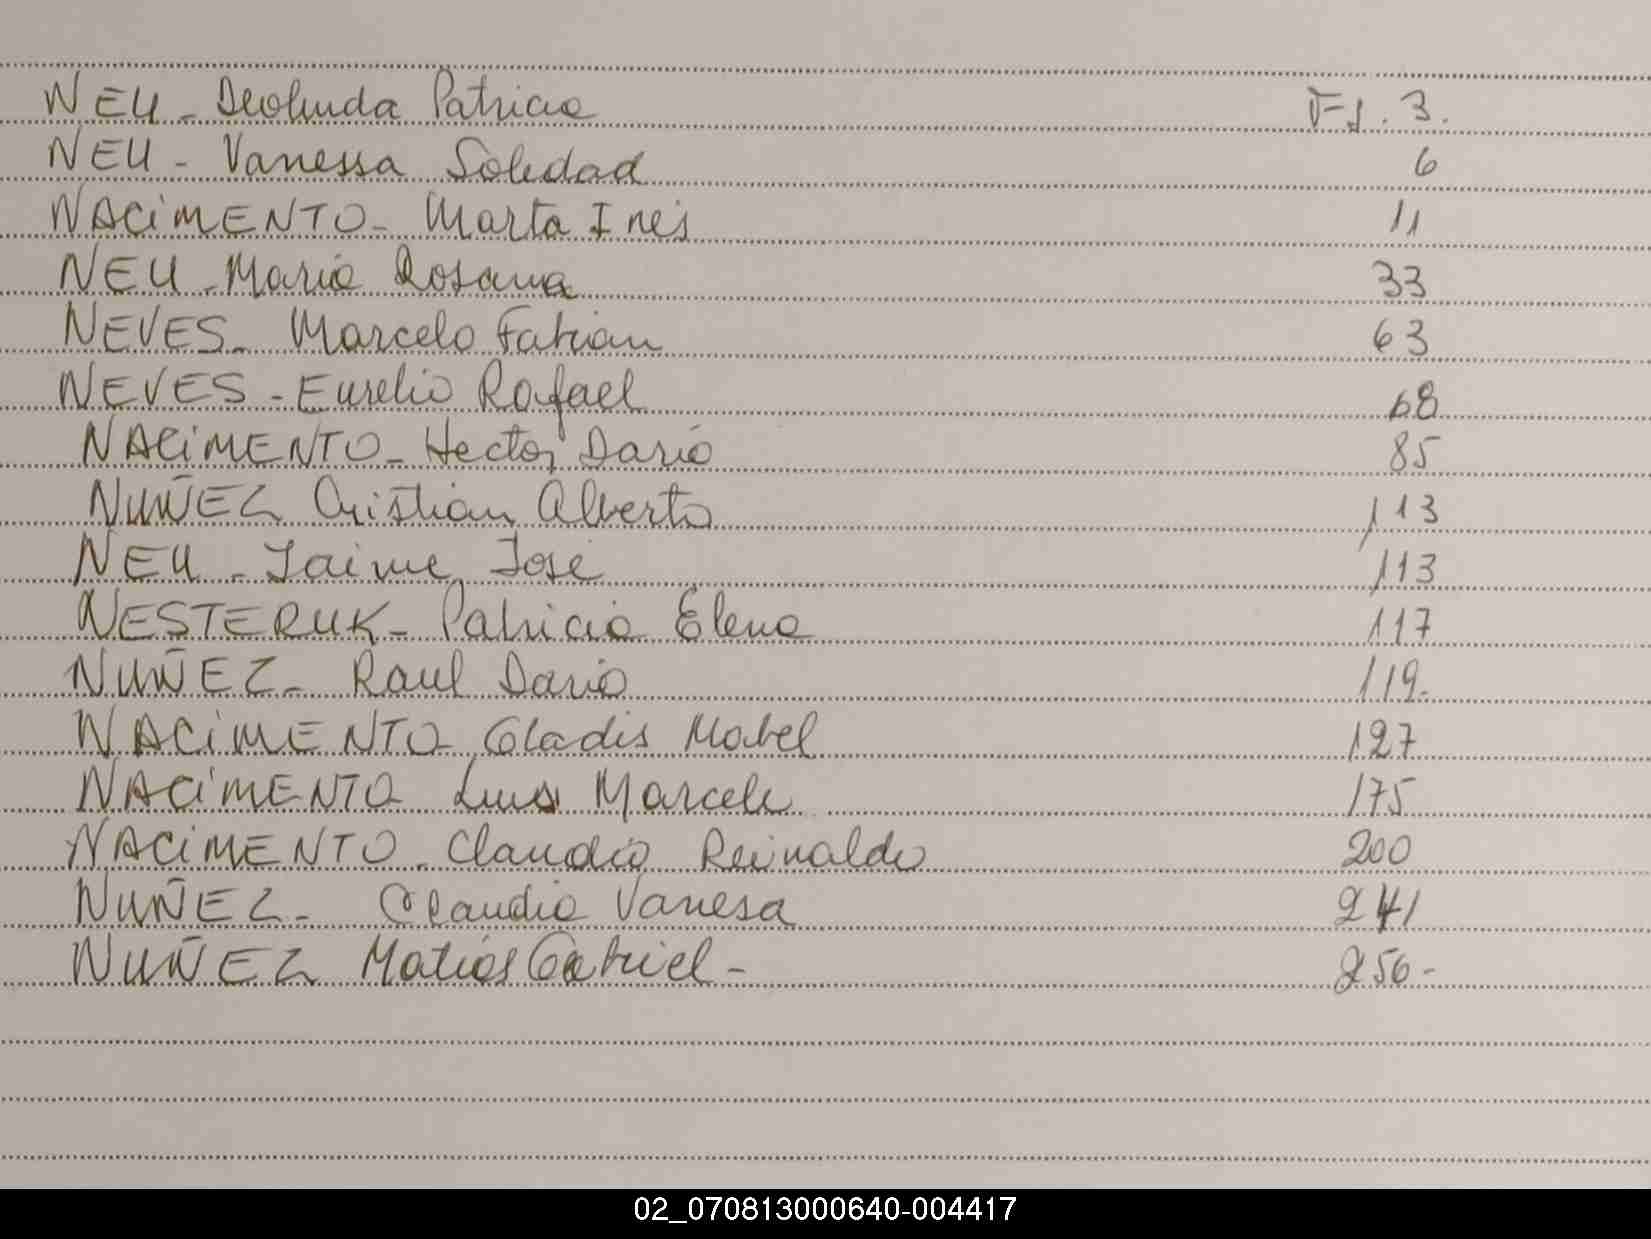 NEU - Deolinda Patricia Fs. 3.
NEU - Vanessa Soledad 6
NACiMENTO - Marta Ines 11
NEU - Maria Rosana 33
NEVES - Marcelo Fabian 63
NEVES - Eurelio Rafael 68
NACiMENTO - Hector Dario 85
NUÑEZ Cristian Alberto 113
NEU - Jaime José 113
NESTERUK - Patricia Elena 117
NUÑEZ - Raul Dario 119.
NACiMENTO - Gladis Mabel 127
NACiMENTO Luis Marcelo 175
NACiMENTO - Claudio Reinaldo 200
NUÑEZ - Claudia Vanesa 241
NUÑEZ Matias Gabriel - 256 -
02_070813000640-004417